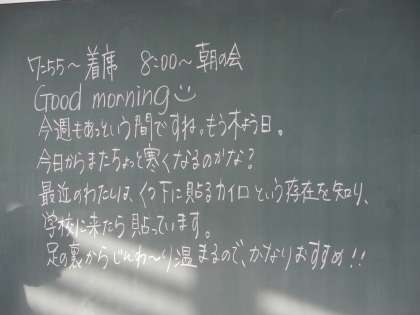 7:55～着席 8:00～朝の会
Good morning
今週もあっという間ですね。もう木よう日。
今日からまたちょっと寒くなるのかな？
最近のわたしは、くつ下に貼るカイロという存在を知り、
学校に来たら貼っています。
足の裏からじんわ～り温まるので、かなりおすすめ！！